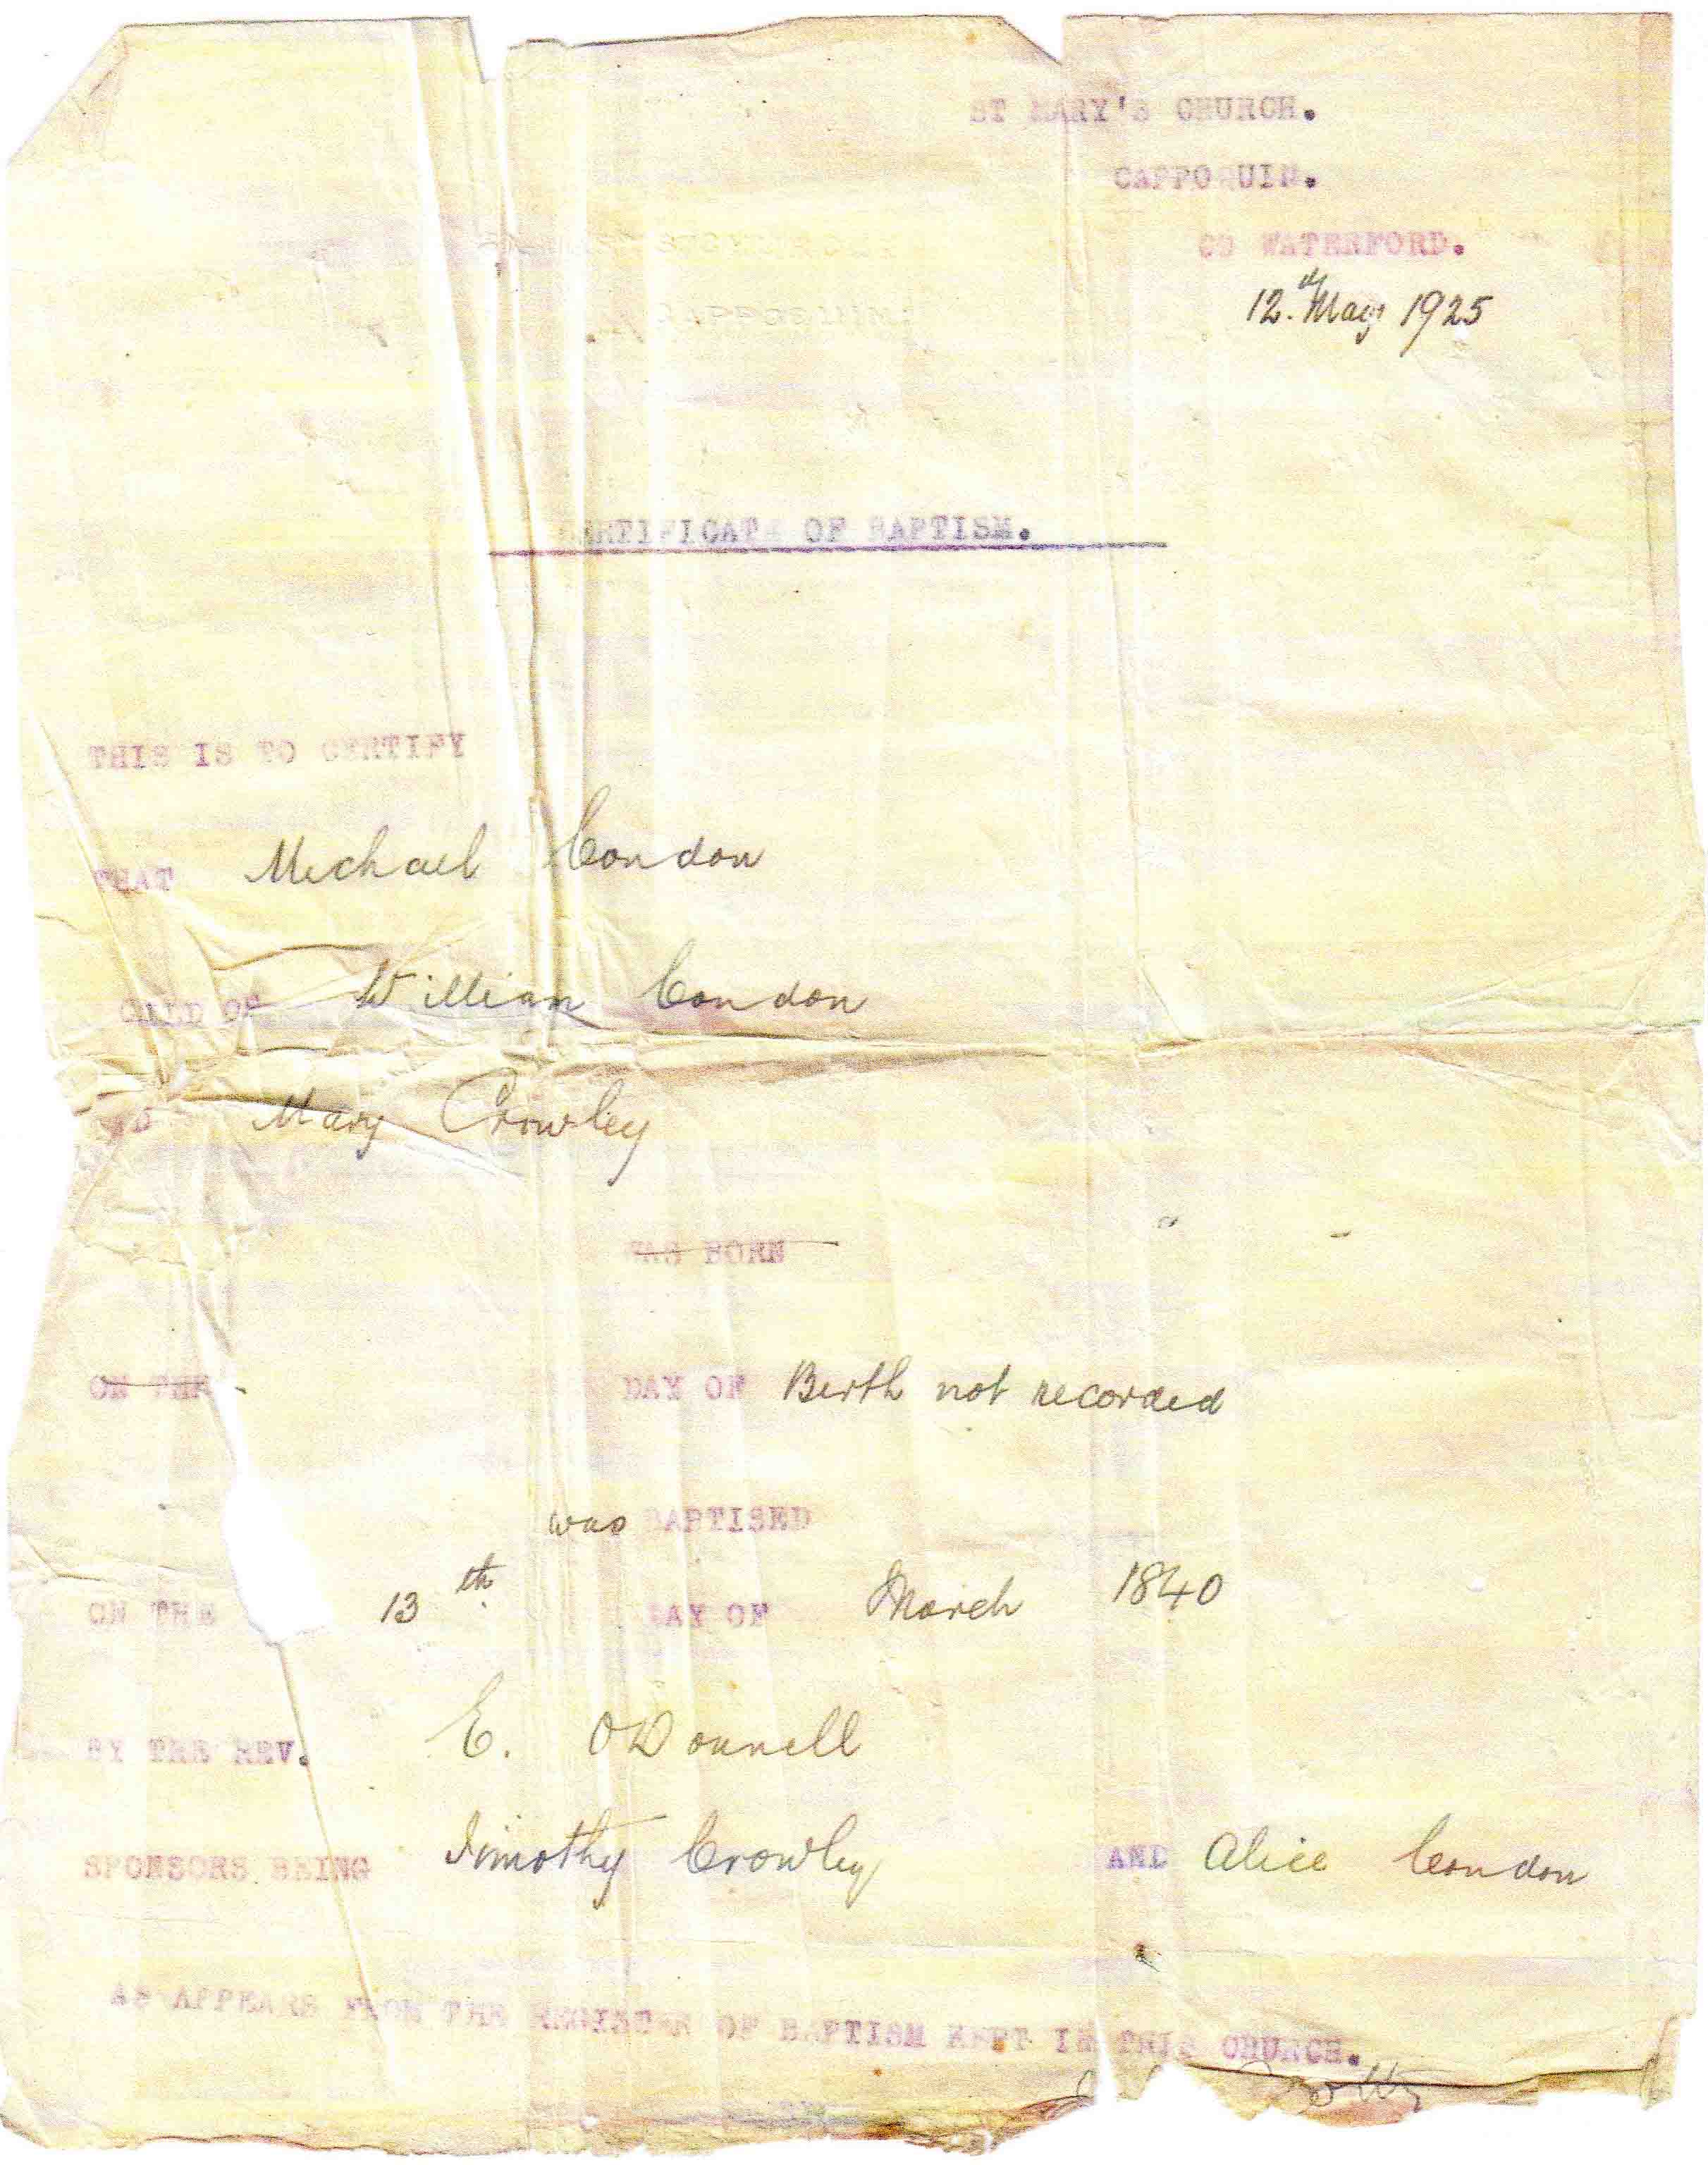 ST MARY'S CHURCH.
CAPPOQUIN.
CO WATERFORD.
12.th May 1925
CAPPOQUIN.
CERTIFICATE OF BAPTISM.
THIS IS TO CERTIFY
THAT Michael Condon
CHILD OF William Condon
AND Mary Crowley
WAS BORN
ON THE DAY OF Birth not recorded
was BAPTISED
ON THE 13th DAY OF March 1840
BY THE REV. E. O'Donnell
SPONSORS BEING Timothy Crowley AND Alice Condon
AS APPEARS FROM THE REGISTER OF BAPTISM KEPT IN THIS CHURCH.